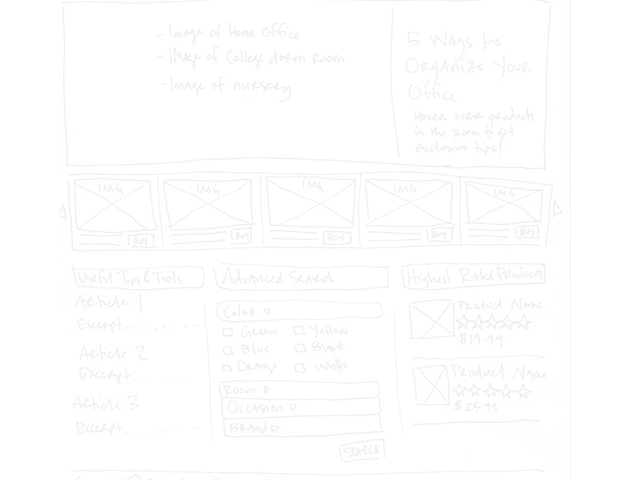 - Image of Home Office
- Image of College dorm room
- Image of nursery
5 Ways to
Organize Your
Office
Hover over products
in the room to get
exclusive tips!
IMG IMG IMG IMG IMG
BUY BUY BUY BUY BUY
Useful Tips & Tools
Article 1
Excerpt........
Article 2
Excerpt.......
Article 3
Excerpt........
Advanced Search
Color
Green Yellow
Blue Black
Orange White
Room
Occasion
Brand
SEARCH
Highest Rated Products
Product Name
$19.99
Product Name
$25.99